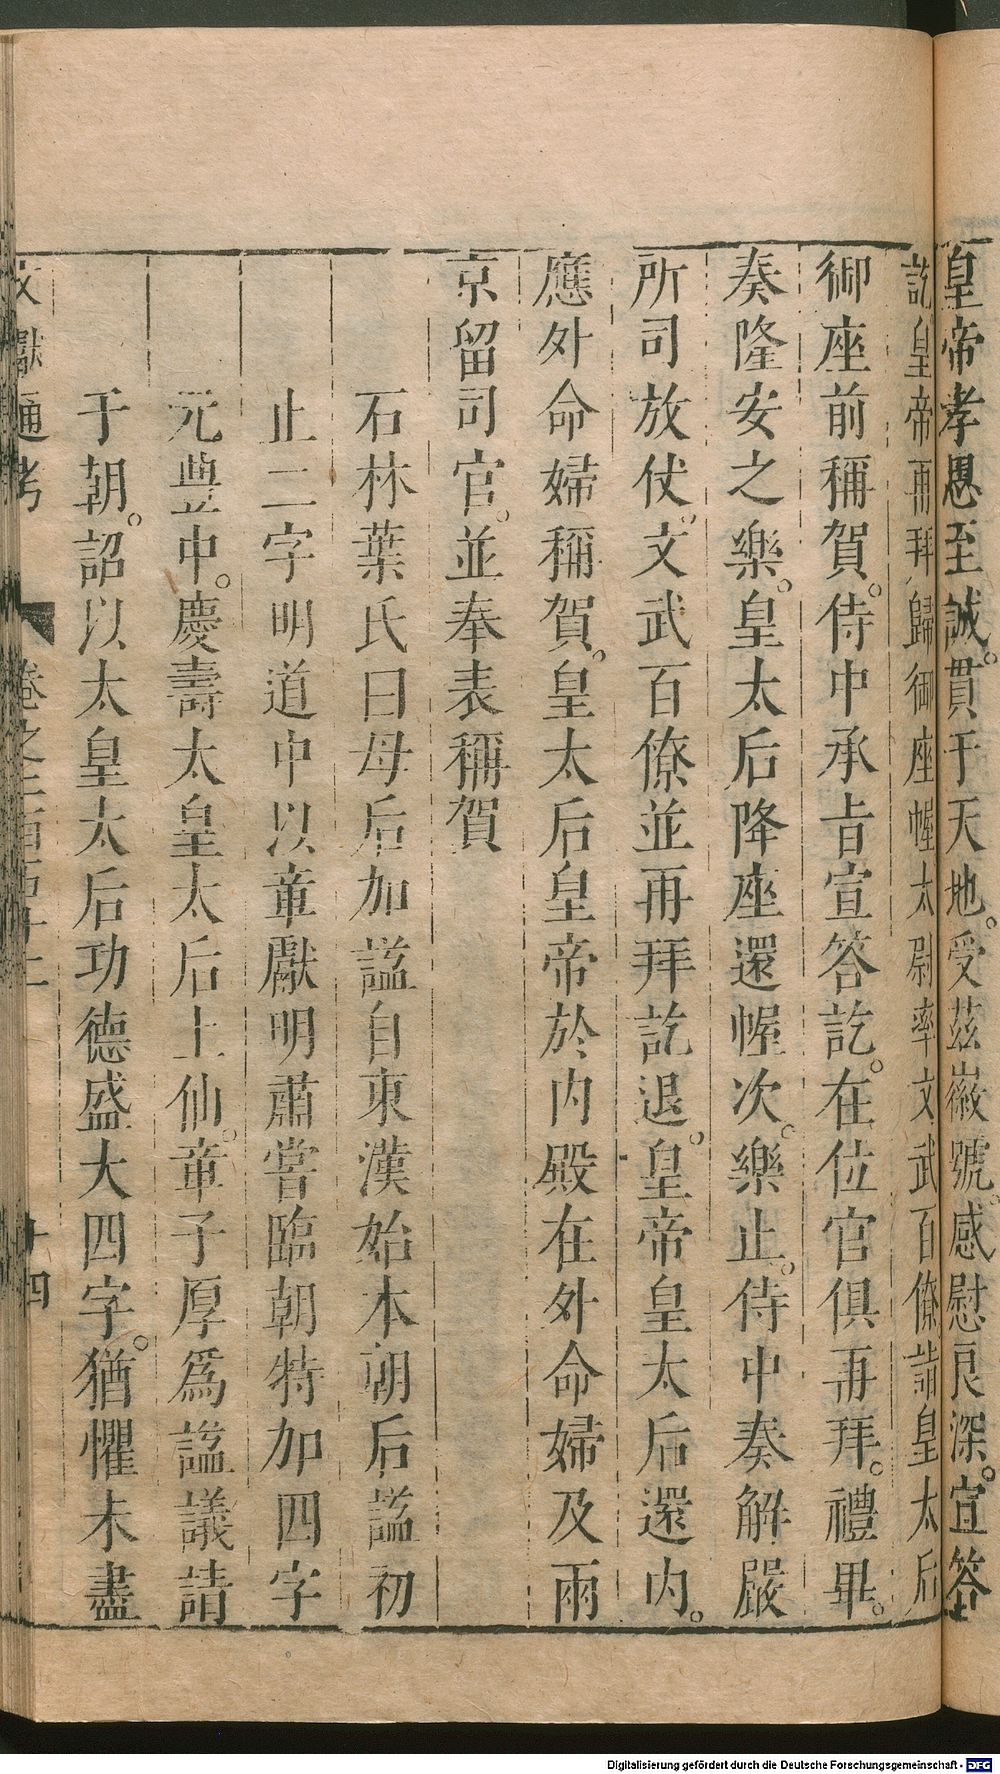 皇帝孝思至誠。貫于天地。受茲徽號。感慰良深。宣答
訖皇帝再拜歸御座幄太尉率文武百僚詣皇太后
御座前稱賀。侍中承旨宣答訖。在位官俱再拜。禮畢。
奏隆安之樂。皇太后降座還幄次。樂止。侍中奏解嚴
所司放仗。文武百僚並再拜訖退。皇帝皇太后還内。
應外命婦稱賀。皇太后皇帝於内殿在外命婦及兩
京留司官。並奉表稱賀
石林葉氏曰母后加諡自東漢始本朝后諡初
止二字明道中以章獻明肅嘗臨朝特加四字
元豐中。慶壽太皇太后上仙。章子厚爲諡議請
于朝。詔以太皇太后功德盛大四字。猶懼未盡
文獻通考
卷之二百五十二
十四
Digitalisierung gefördert durch die Deutsche Forschungsgemeinschaft - DFG